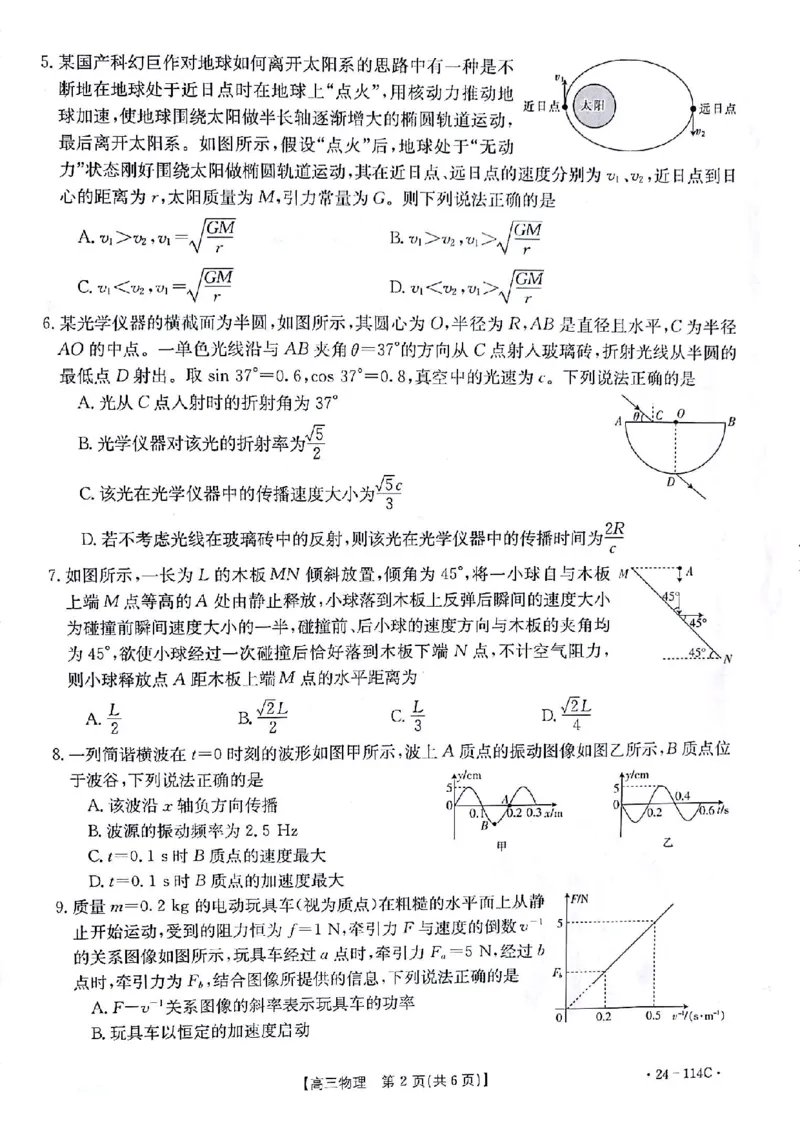 5. 某国产科幻巨作对地球如何离开太阳系的思路中有一种是不
断地在地球处于近日点时在地球上“点火”,用核动力推动地
球加速,使地球围绕太阳做半长轴逐渐增大的椭圆轨道运动,
最后离开太阳系。如图所示,假设“点火”后,地球处于“无动
力”状态刚好围绕太阳做椭圆轨道运动,其在近日点、远日点的速度分别为 v₁、v₂,近日点到日
心的距离为 r,太阳质量为 M,引力常量为 G。则下列说法正确的是
v₁
近日点
太阳
远日点
v₂
A. v₁>v₂,v₁=√(GM/r)
B. v₁>v₂,v₁>√(GM/r)
C. v₁<v₂,v₁=√(GM/r)
D. v₁<v₂,v₁>√(GM/r)
6. 某光学仪器的横截面为半圆,如图所示,其圆心为 O,半径为 R,AB 是直径且水平,C 为半径
AO 的中点。一单色光线沿与 AB 夹角 θ=37°的方向从 C 点射入玻璃砖,折射光线从半圆的
最低点 D 射出。取 sin 37°=0.6,cos 37°=0.8,真空中的光速为 c。下列说法正确的是
A. 光从 C 点入射时的折射角为 37°
B. 光学仪器对该光的折射率为√5/2
C. 该光在光学仪器中的传播速度大小为√5c/3
D. 若不考虑光线在玻璃砖中的反射,则该光在光学仪器中的传播时间为2R/c
A θ C O B
D
7. 如图所示,一长为 L 的木板 MN 倾斜放置,倾角为 45°,将一小球自与木板
上端 M 点等高的 A 处由静止释放,小球落到木板上反弹后瞬间的速度大小
为碰撞前瞬间速度大小的一半,碰撞前、后小球的速度方向与木板的夹角均
为 45°,欲使小球经过一次碰撞后恰好落到木板下端 N 点,不计空气阻力,
则小球释放点 A 距木板上端 M 点的水平距离为
M A
45°
45°
45° N
A. L/2
B. √2L/2
C. L/3
D. √2L/4
8. 一列简谐横波在 t=0 时刻的波形如图甲所示,波上 A 质点的振动图像如图乙所示,B 质点位
于波谷,下列说法正确的是
A. 该波沿 x 轴负方向传播
B. 波源的振动频率为 2.5 Hz
C. t=0.1 s 时 B 质点的速度最大
D. t=0.1 s 时 B 质点的加速度最大
y/cm
5
0
A
0.1 0.2 0.3 x/m
B
甲
y/cm
5
0
0.2 0.4 0.6 t/s
乙
9. 质量 m=0.2 kg 的电动玩具车(视为质点)在粗糙的水平面上从静
止开始运动,受到的阻力恒为 f=1 N,牵引力 F 与速度的倒数 v⁻¹
的关系图像如图所示,玩具车经过 a 点时,牵引力 Fₐ=5 N,经过 b
点时,牵引力为 F_b,结合图像所提供的信息,下列说法正确的是
A. F—v⁻¹关系图像的斜率表示玩具车的功率
B. 玩具车以恒定的加速度启动
F/N
5
F_b
0 0.2 0.5 v⁻¹/(s·m⁻¹)
【高三物理 第 2 页(共 6 页)】
·24-114C·